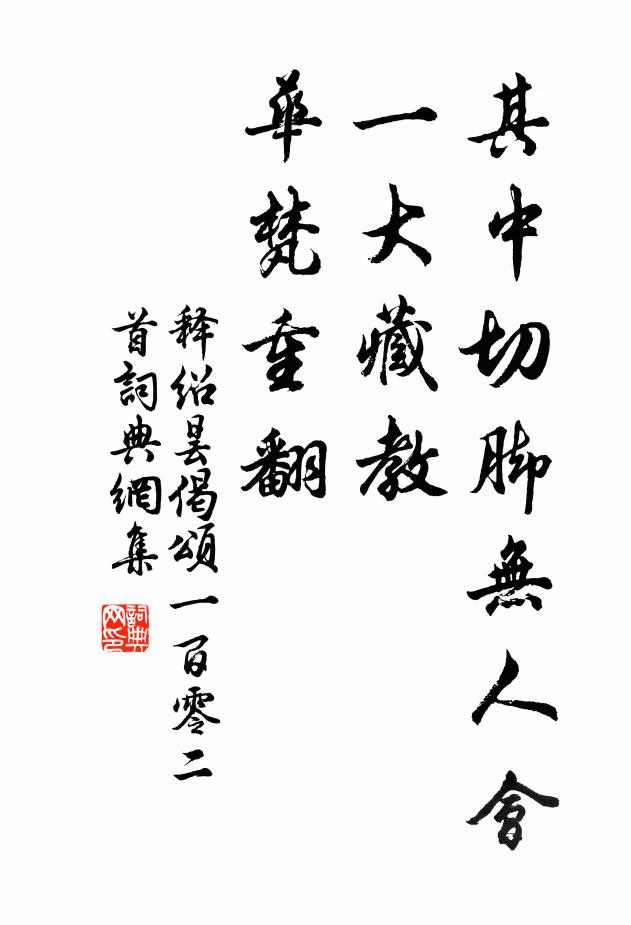 其中切脚無人會
一大藏教
華梵重翻
释紹曇偈頌一百零二
首詞典網集
詞典網印